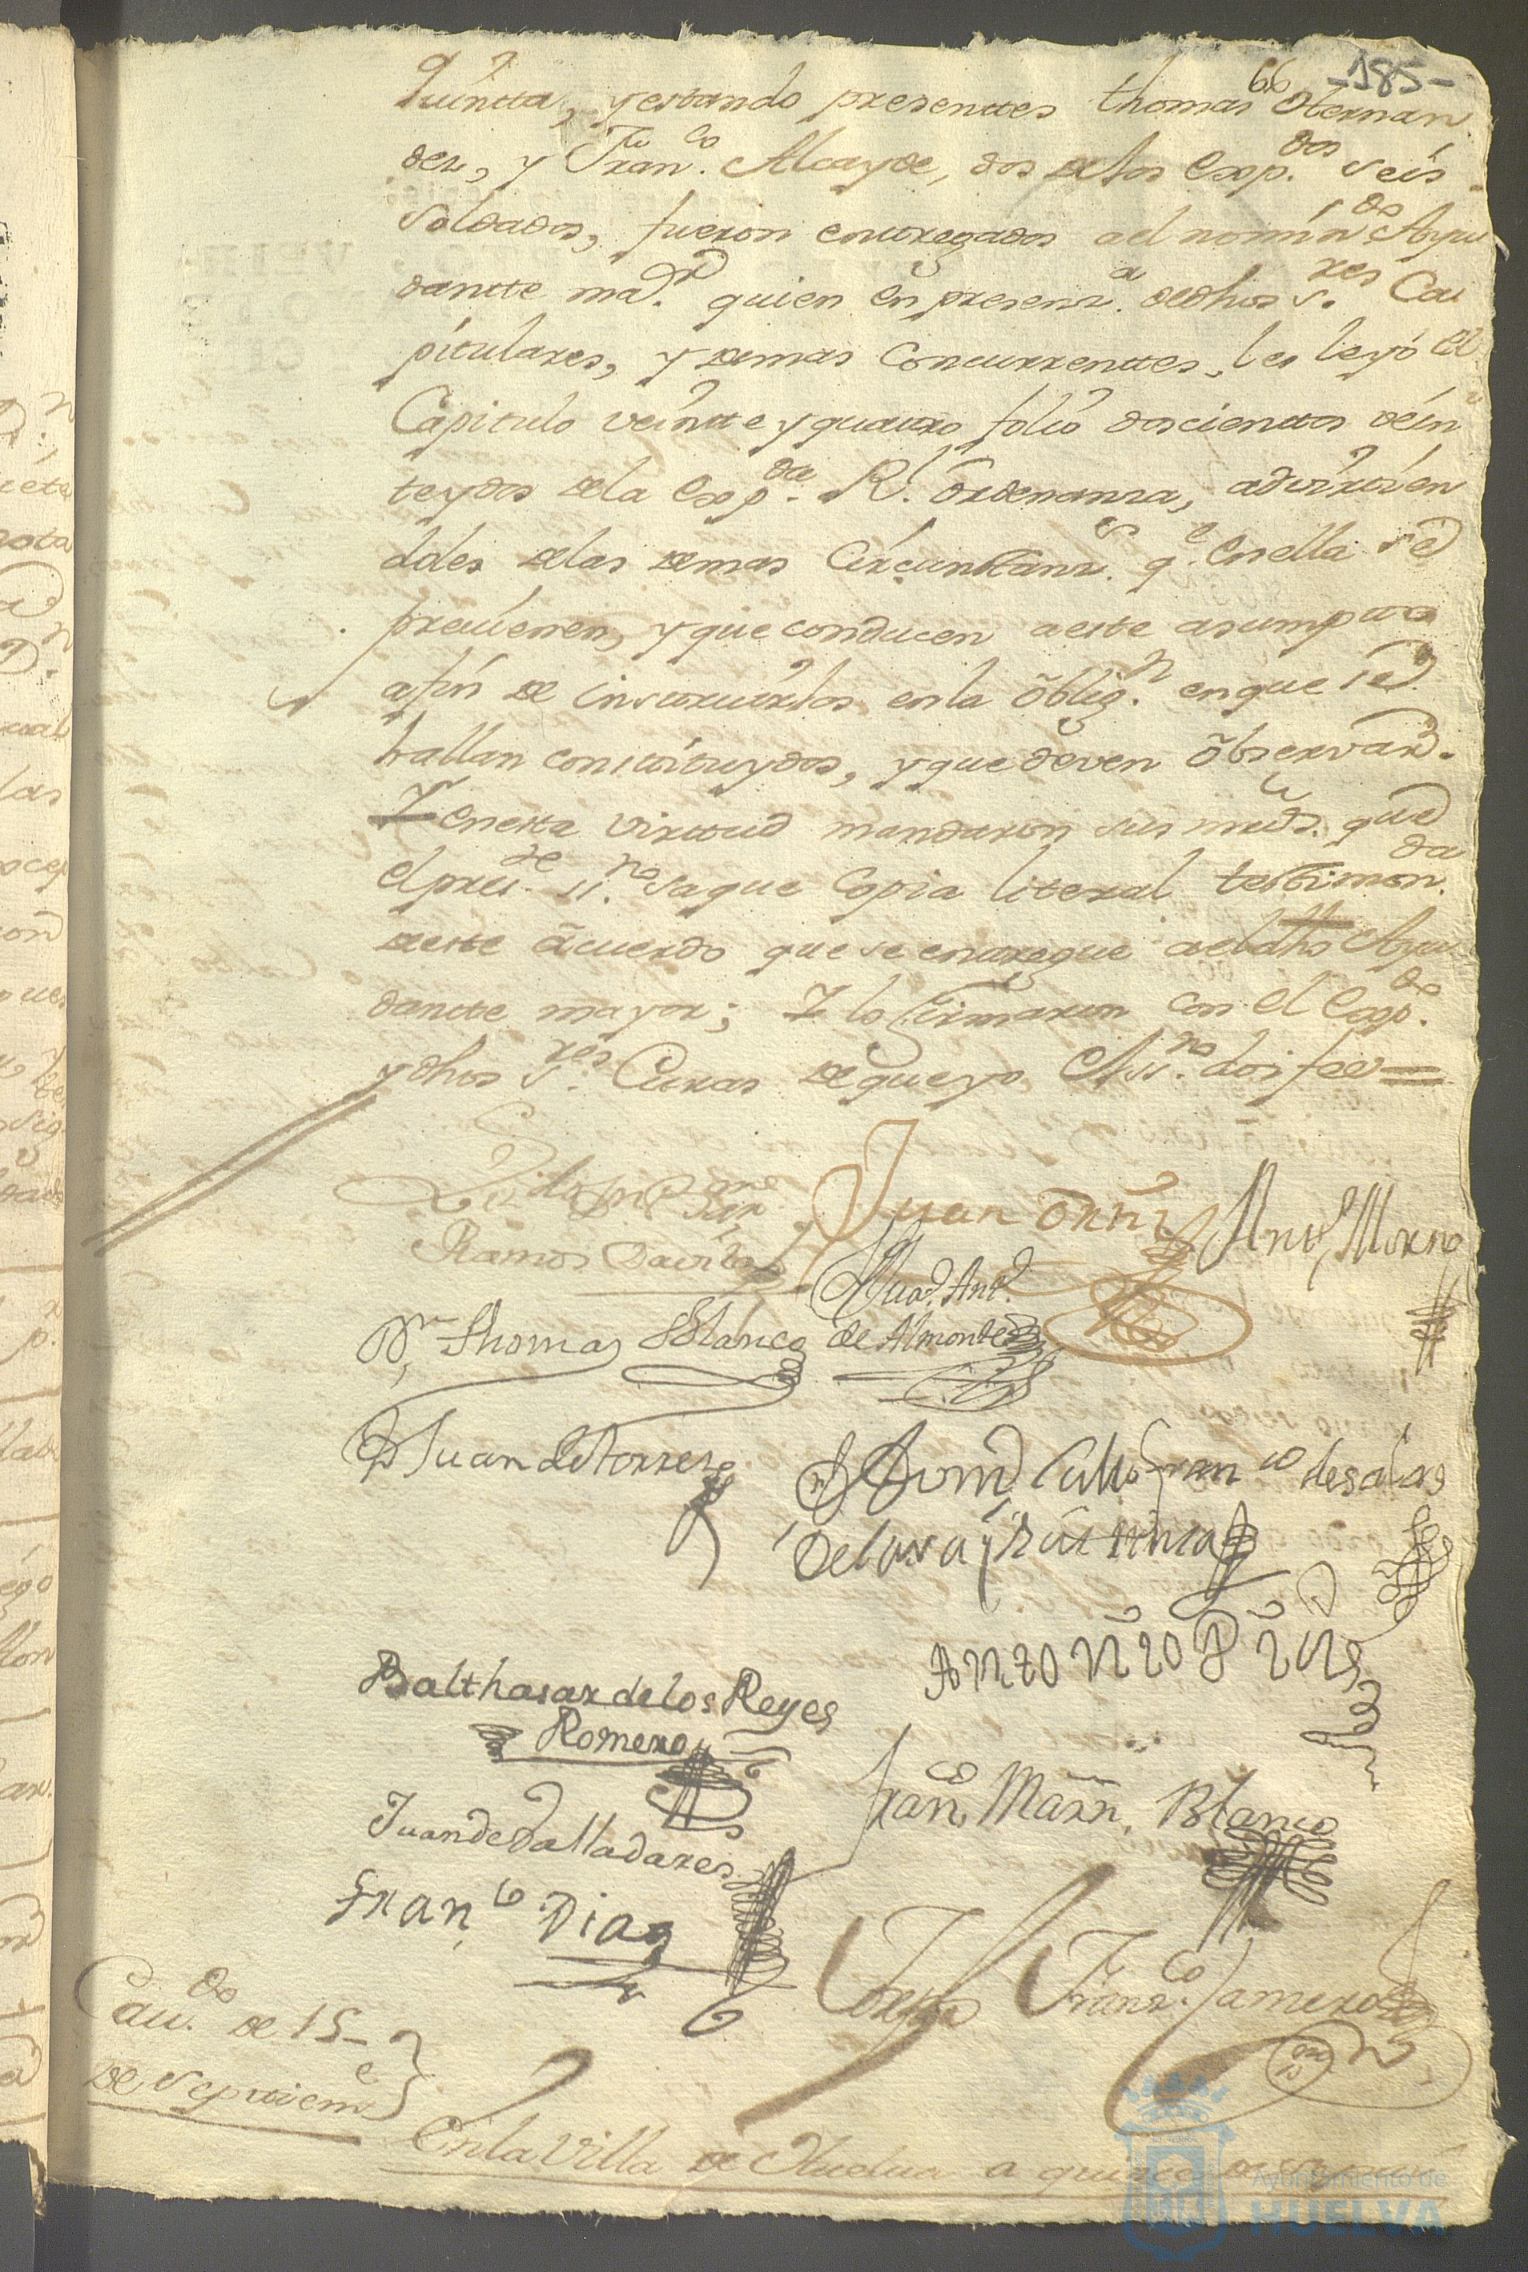 66 -185-
Quintta, y estando presenttes thomas Hernan
dez, y Fran.co Alcayde, dos de los Exp.dos seis
soldados, fueron entregados a el nomin.do Ayu
dantte ma.r quien en presenz.a de dhos s.res Ca
pitulares, y demas Concurrenttes, les leyó el
Capitulo veintte y quatro folio doscienttos vein
te y dos de la Exp.da R.l ordenanza, advirtien
doles de las demas Circunstanz.s q.e en ella se
previenen, y que conducen a este asumpto
a fin de instruirlos en la oblig.n en que se
hallan constituydos, y que deven observar.
Y en esta virtud mandaron sus mrds. que
el pres.te ss.no saque Copia literal testimon.da
de este acuerdo que se entregue a el dho Ayu
dantte mayor; Y lo firmaron con el Exp.do
y dhos s.res Curas de que yo el ss.no doi fee=
Ramos Davila
Juan Ortiz
Ant.o Moreno
D.n Thomas Blanco
Juan Ant.o
de Almonte
D Juan de Torres
Fran.co de salas
Balthasar de los Reyes
Romero
Antonio
Fran.co Marn. Blanco
Juan de Valladares
Fran.co Diaz
Joseph Franz.co Jamero
Cav.do de 15_
de Septiem.e
En la Villa de Huelva a quinze de
Ayuntamiento de
HUELVA